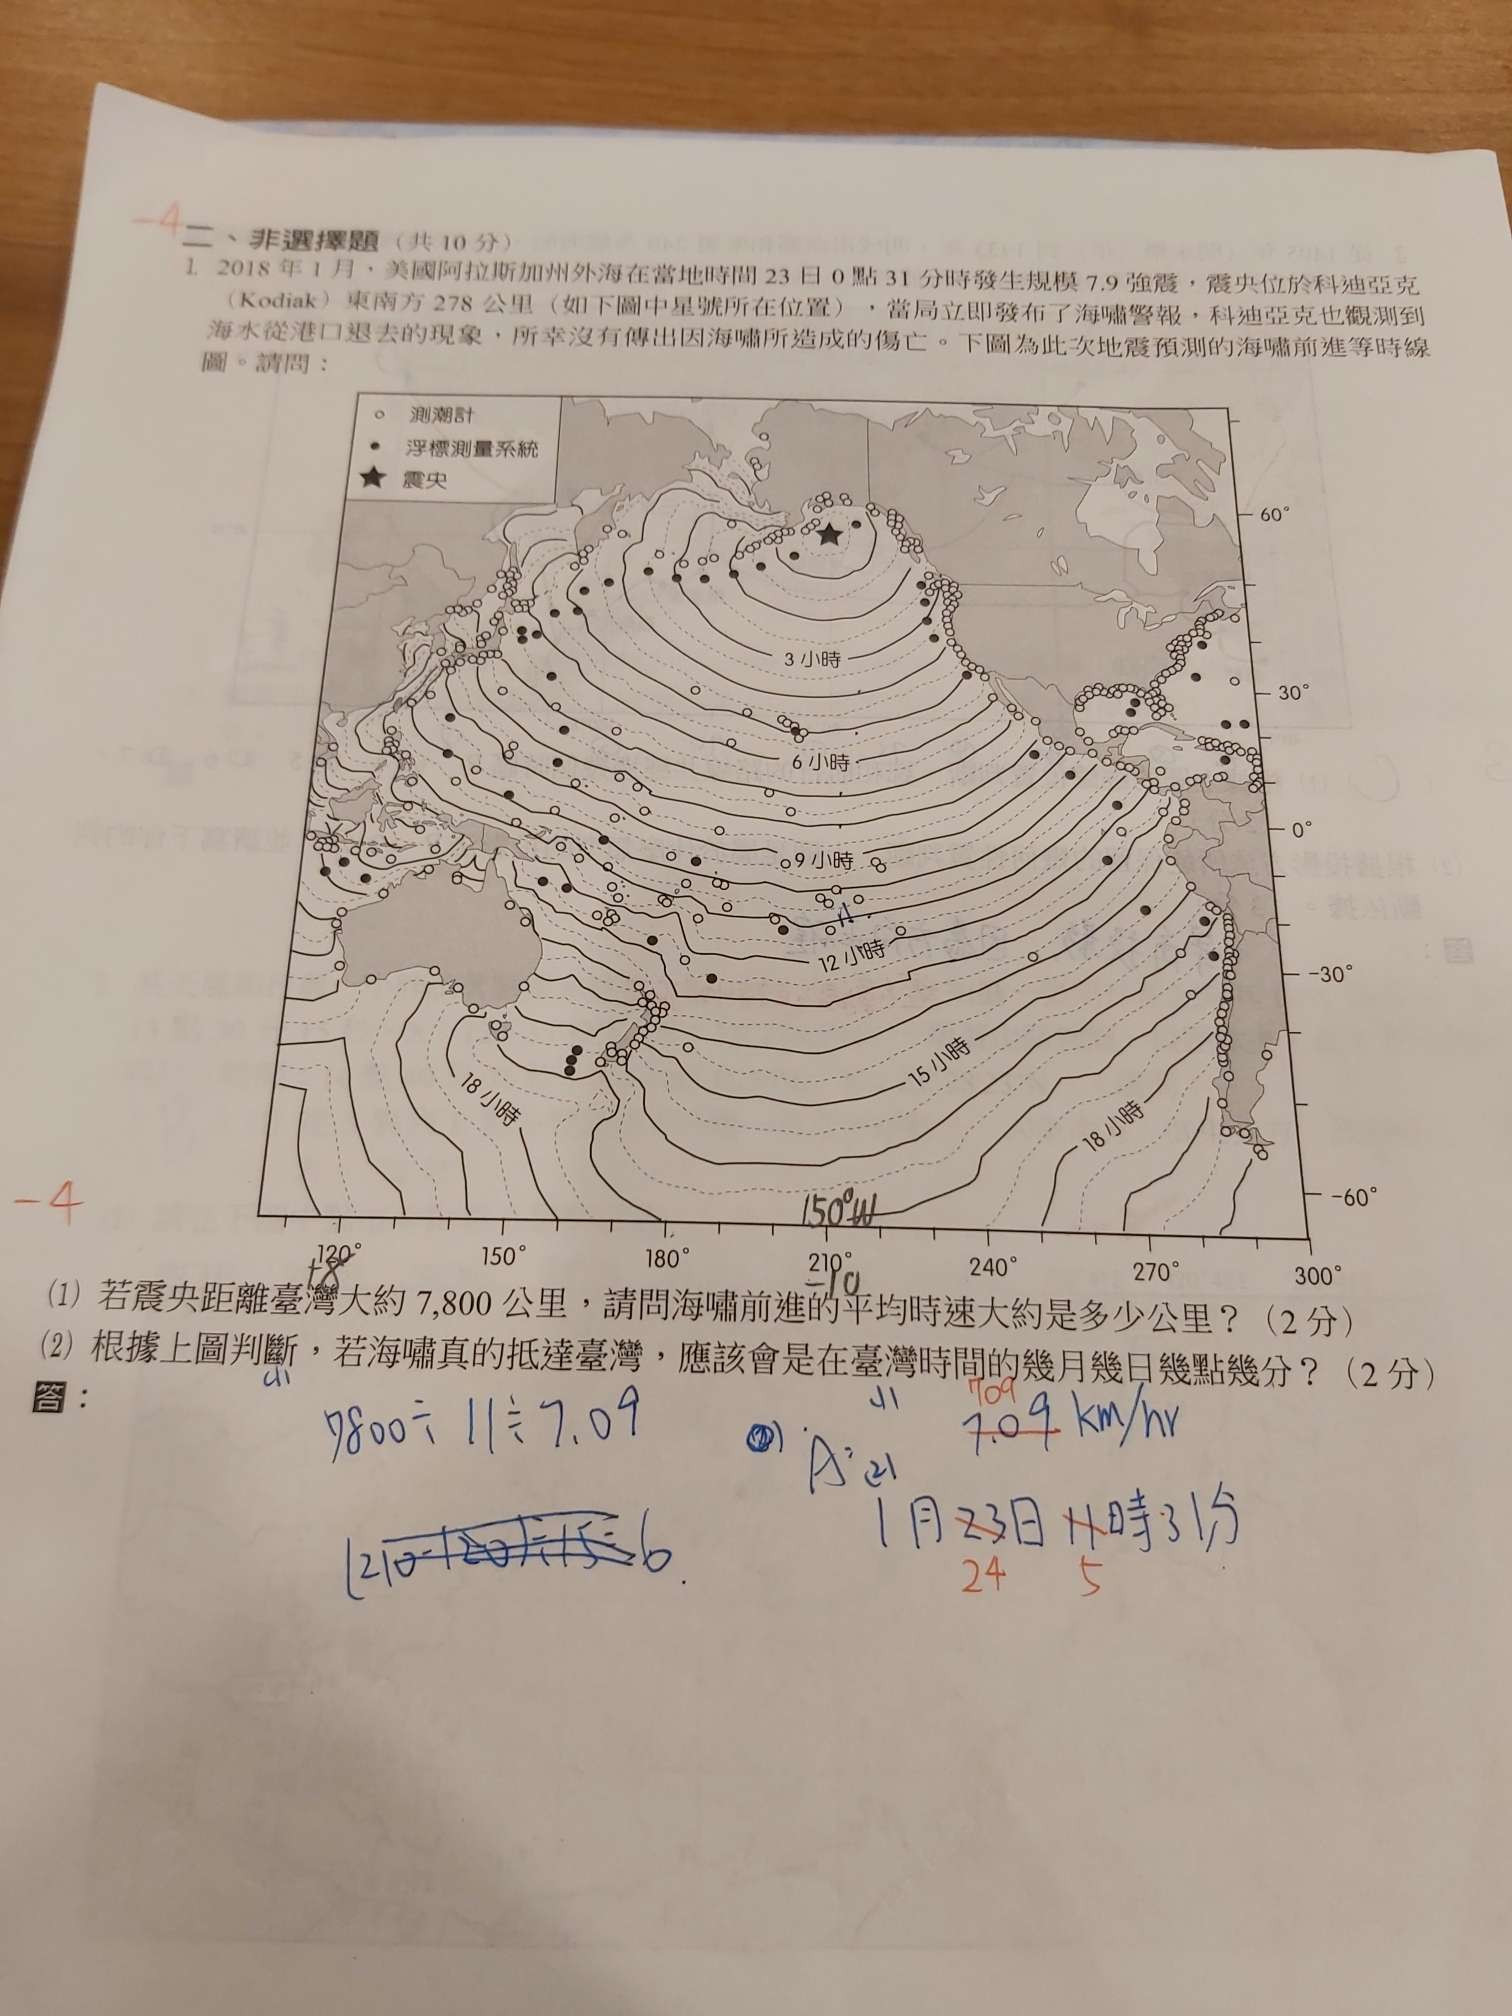 -4
二、非選擇題（共10分）
1. 2018年1月，美國阿拉斯加州外海在當地時間23日0點31分時發生規模7.9強震，震央位於科迪亞克
（Kodiak）東南方278公里（如下圖中星號所在位置），當局立即發布了海嘯警報，科迪亞克也觀測到
海水從港口退去的現象，所幸沒有傳出因海嘯所造成的傷亡。下圖為此次地震預測的海嘯前進等時線
圖。請問：
測潮計
浮標測量系統
震央
60°
3小時
30°
6小時
0°
9小時
11
12小時
-30°
15小時
18小時
18小時
-60°
-4
150°W
120° 150° 180° 210° 240° 270° 300°
+8 -10
(1) 若震央距離臺灣大約7,800公里，請問海嘯前進的平均時速大約是多少公里？（2分）
(2) 根據上圖判斷，若海嘯真的抵達臺灣，應該會是在臺灣時間的幾月幾日幾點幾分？（2分）
答：
(1) 7800÷11≒7.09
A: (1) 7.09 km/hr
709
(2)
1月23日11時31分
24 5